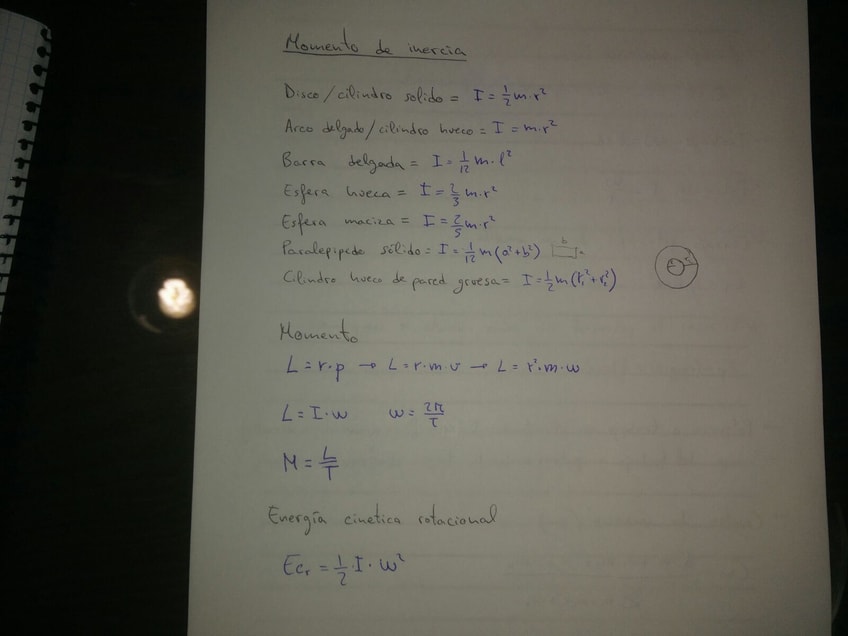 Momento de inercia
Disco/cilindro solido = I = 1/2 m·r²
Arco delgado/cilindro hueco = I = m·r²
Barra delgada = I = 1/12 m·l²
Esfera hueca = I = 2/3 m·r²
Esfera maciza = I = 2/5 m·r²
Paralepipede sólido = I = 1/12 m(a²+b²) b a
Cilindro hueco de pared gruesa = I = 1/2 m(r₁²+r₂²)
Momento
L = r·p → L = r·m·v → L = r²·m·w
L = I·w w = 2π/T
M = L/T
Energía cinetica rotacional
Ecᵣ = 1/2·I·w²